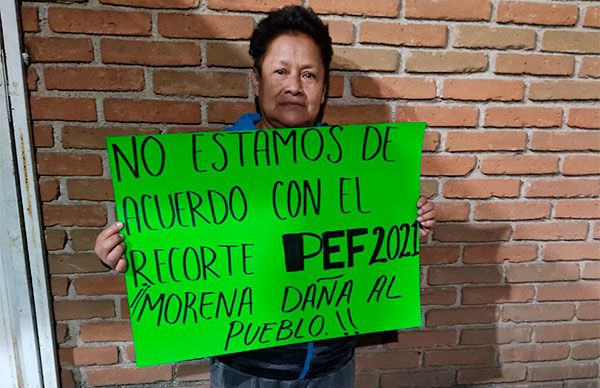 NO ESTAMOS DE
ACUERDO CON EL
RECORTE PEF 2021
¡¡MORENA DAÑA AL
PUEBLO.!!